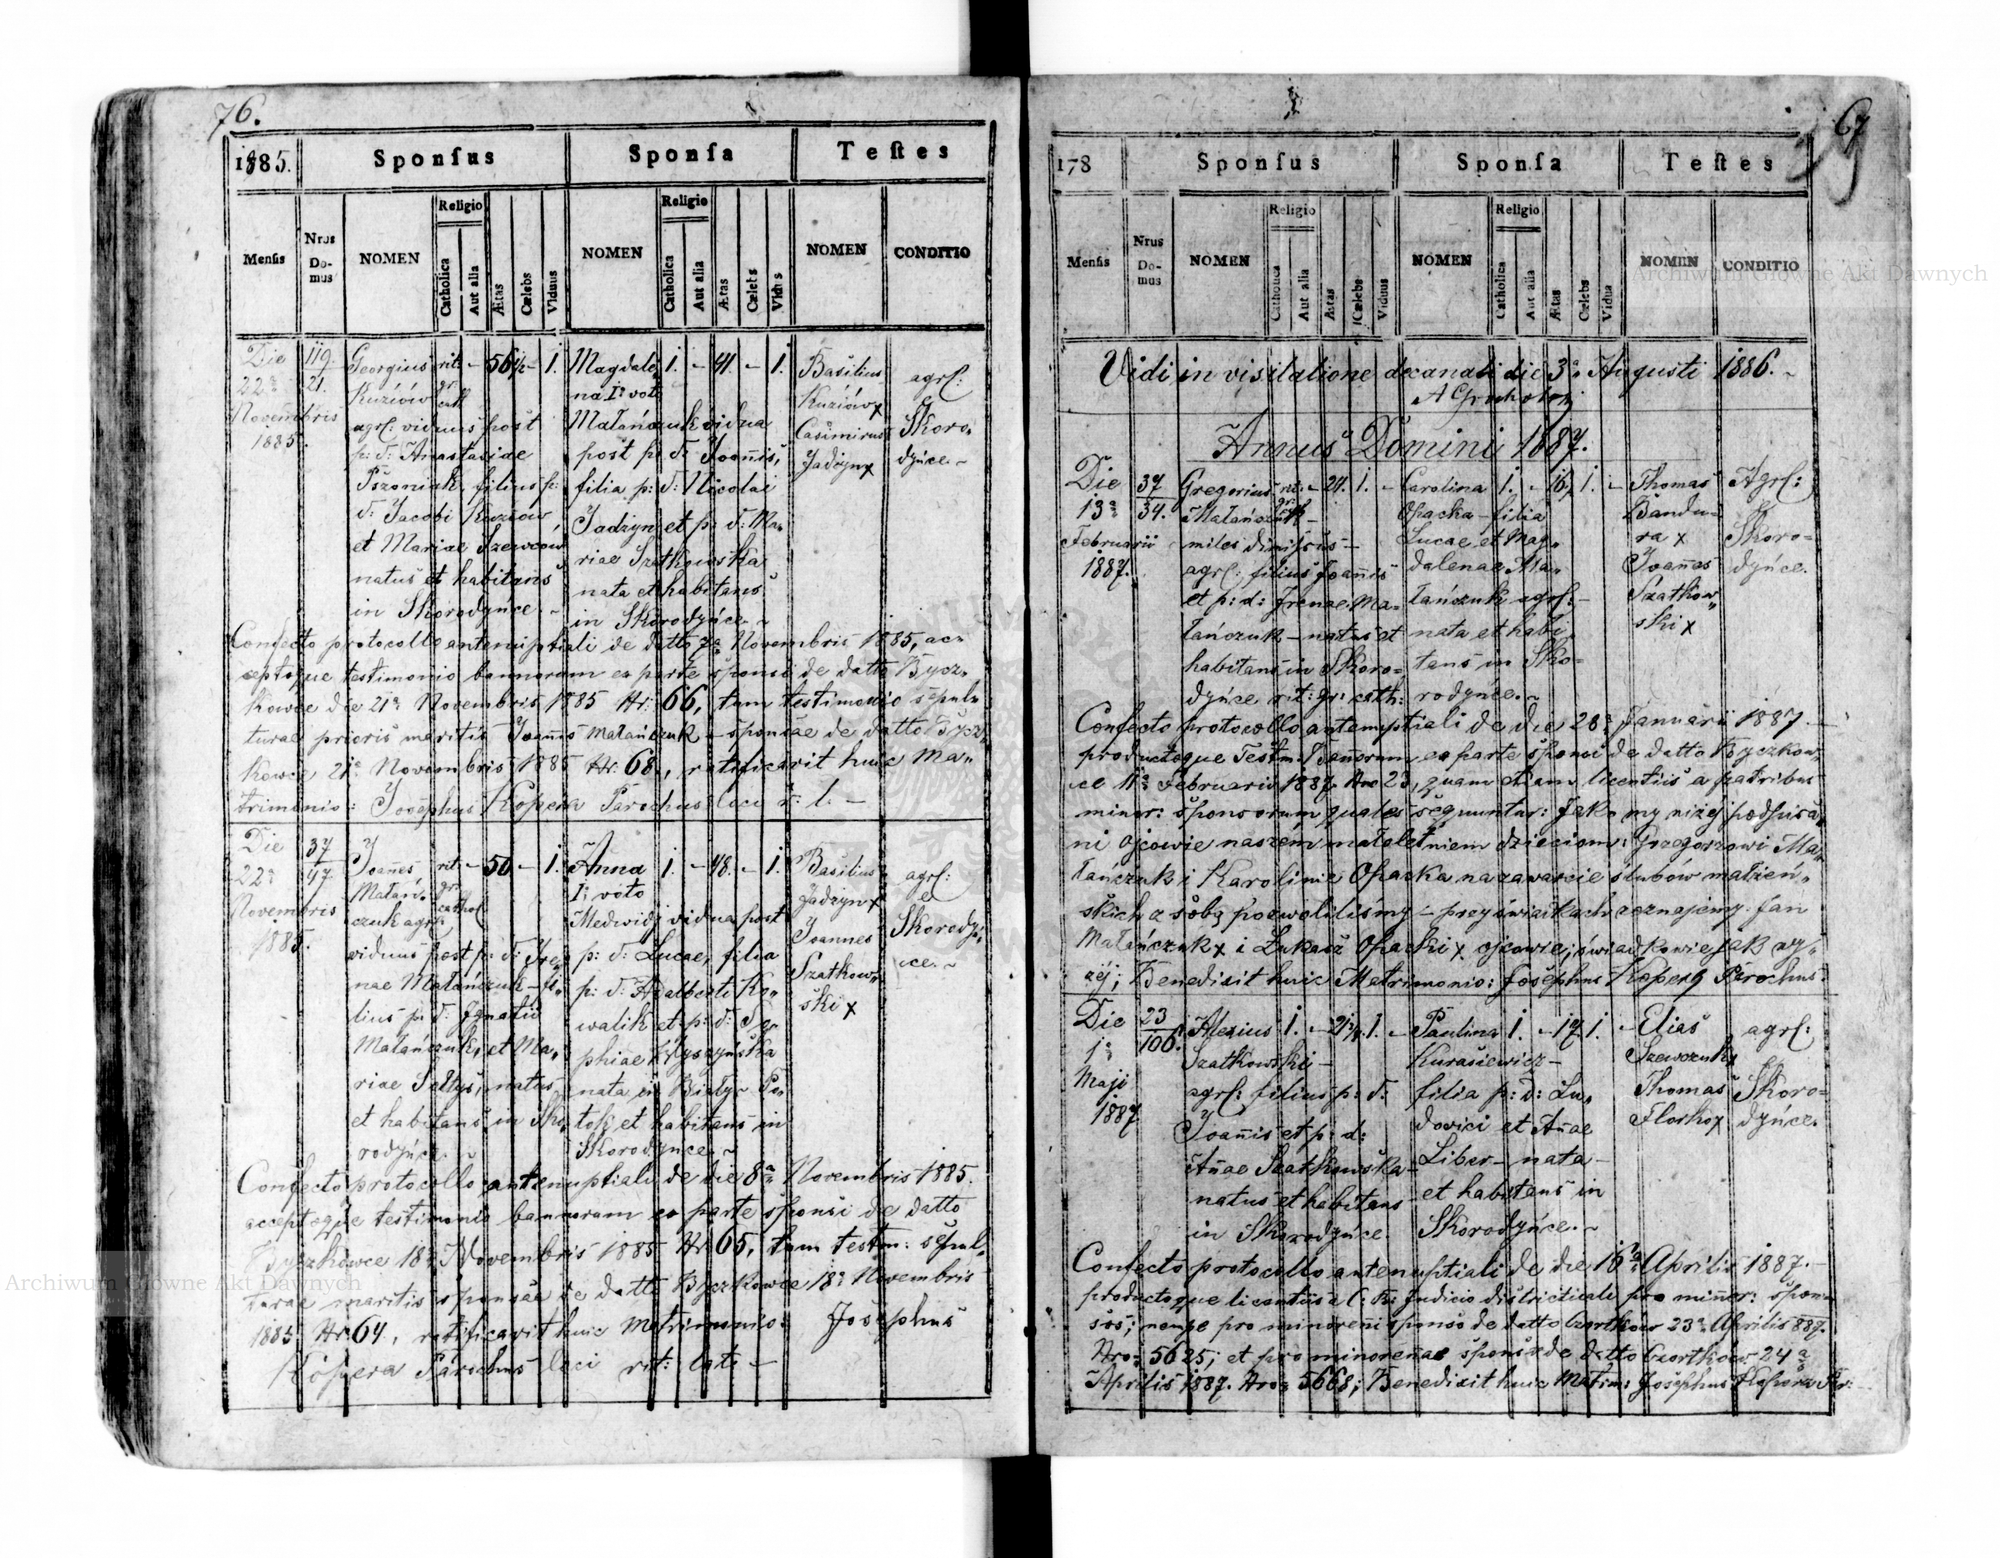 76.
1885.
Sponſus
Sponſa
Teſtes
Menſis
Nrus Domus
NOMEN
Religio
Catholica
Aut alia
Ætas
Cœlebs
Viduus
NOMEN
Religio
Catholica
Aut alia
Ætas
Cœlebs
Vidua
NOMEN
CONDITIO
Die
22a
Novembris
1885.
119.
21.
Georgius rit - 56½ - 1.
Kuziów gr cath
agrl: viduus post
p: d: Anastasiae
Pszoniak, filius p:
d: Jacobi Kuziów,
et Mariae Szewców
natus et habitans
in Skorodyńce. ~
Magdale 1. - 41. - 1.
na Io voto
Matańczuk vidua
post p: d: Joañis,
filia p: d: Nicolai
Jadzyn et p: d: Ma-
riae Szatkowska
nata et habitans
in Skorodyńce. ~
Basilius
Kuziów x
Casimirus
Jadzyn x
agrl:
e
Skoro-
dyńce. ~
Confecto protocollo antenuptiali de datto 7a Novembris 1885, ac-
ceptoque testimonio bannorum ex parte sponsi de datto Bycz-
kowce die 21a Novembris 1885 Nr: 66, tum testimonio sepul-
turae prioris mariti Joañis Matańczuk - sponsae de datto Bycz-
kowce 21a Novembris 1885 Nr: 68, ratificavit huic Ma-
trimonio: Josephus Kopera Parochus loci r: l. -
Die
22a
Novembris
1885.
37
47.
Joañes, rit - 50 - 1.
Matań- gr
czuk agrl: cathol
viduus post p: d: Ire-
nae Matańczuk - fi-
lius p: d: Ignatii
Matańczuk, et Ma-
riae Sołtys, natus
et habitans in Sko-
rodyńce. ~
Anna 1. - 48. - 1.
Io voto
Medwidj vidua post
p: d: Lucae, filia
p: d: Adalberti Ko-
walik et p: d: So-
phiae
nata in Biały Po-
tok et habitans in
Skorodyńce ~
Basilius
Jadzyn x
Joannes
Szatkow-
ski x
agrl:
e
Skorodyń-
ce. ~
Confecto protocollo antenuptiali de die 8a Novembris 1885.
acceptoque testimonio bannorum ex parte sponsi de datto
Byczkowce 18a Novembris 1885 Nr: 65, tum testm: sepul-
turae maritis sponsae de datto Byczkowce 18a Novembris
1885 Nr: 64, ratificavit huic Matrimonio: Josephus
Kopera Parochus loci rit: lat: -
67
178
Sponſus
Sponſa
Teſtes
Menſis
Nrus Domus
NOMEN
Religio
Catholica
Aut alia
Ætas
Cœlebs
Viduus
NOMEN
Religio
Catholica
Aut alia
Ætas
Cœlebs
Vidua
NOMEN
CONDITIO
Vidi in visitatione decanali die 3a Augusti 1886. ~
Annus Domini 1887.
Die
13a
Februarii
1887.
37
34.
Gregorius rit. - 24. 1. -
Matańczuk gr: cath -
miles dimissus -
agrl: filius Joañis
et p: d: Irenae Ma-
tańczuk - natus et
habitans in Skoro-
dyńce rit: gr: cath:
Carolina 1. - 16½ 1. -
Opacka - filia
Lucae et Mag-
dalenae Ma-
tańczuk agrl: -
nata et habi-
tans in Sko-
rodyńce. ~
Thomas
Bandu-
ra x
Joañes
Szatkow-
ski x
Agrl:
e
Skoro-
dyńce.
Confecto protocollo antenuptiali de die 28a Januarii 1887. -
productoque Testm: Bañorum ex parte sponsi de datto Byczkow-
ce 11a Februarii 1887 Nro 23, quam etiam licentiis a patribus
minor: sponsorum quales sequuntur: Jako my niżej podpisa-
ni ojcowie naszem małoletniem dzieciom: Grzegorzowi Ma-
tańczuk i Karolinie Opacka na zawarcie ślubów małżeń-
skich z sobą pozwoliliśmy - przy świadkach zeznajemy. Jan
Matańczuk x i Łukasz Opacki x ojcowie; świadkowie jak wy-
żej; Benedixit huic Matrimonio: Josephus Kopera Parochus.
Die
1a
Maji
1887
23
106.
Alexius 1. - 21½ 1. -
Szatkowski -
agrl: filius p: d:
Joañis et p: d:
Añae Szatkowska -
natus et habitans
in Skorodyńce.
Paulina 1. - 17. 1. -
Kurasiewicz -
filia p: d: Lu-
dovici et Añae
Liber - nata -
et habitans in
Skorodyńce. ~
Elias
Szewczuk x
Thomas
Florko x
agrl:
e
Skoro-
dyńce.
Confecto protocollo antenuptiali de die 16a Aprilis 1887. -
productoque licentiis a C: R: Judicio districticali pro minor: spon-
sos; nempe pro minoreñi sponso de datto Czortków 23a Aprilis 887.
Nro: 5625; et pro minoreñae sponsae de datto Czortków 24a
Aprilis 1887. Nro: 5668; Benedixit huic Matrim: Josephus Kopera Par:
Archiwum Główne Akt Dawnych
Archiwum Główne Akt Dawnych